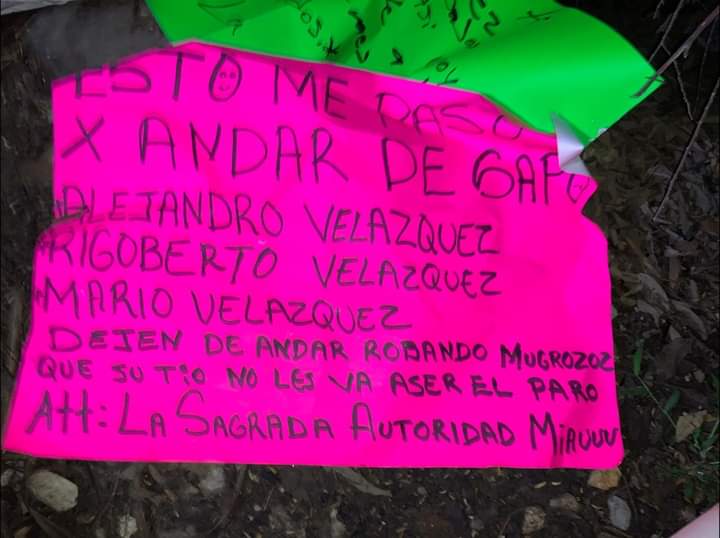 ESTO ME PASO
X ANDAR DE SAPO
ALEJANDRO VELAZQUEZ
RIGOBERTO VELAZQUEZ
MARIO VELAZQUEZ
DEJEN DE ANDAR ROBANDO MUGROZOZ
QUE SU TiO NO LES VA ASER EL PARO
Att: LA SAGRADA AUTORIDAD MiAUUU